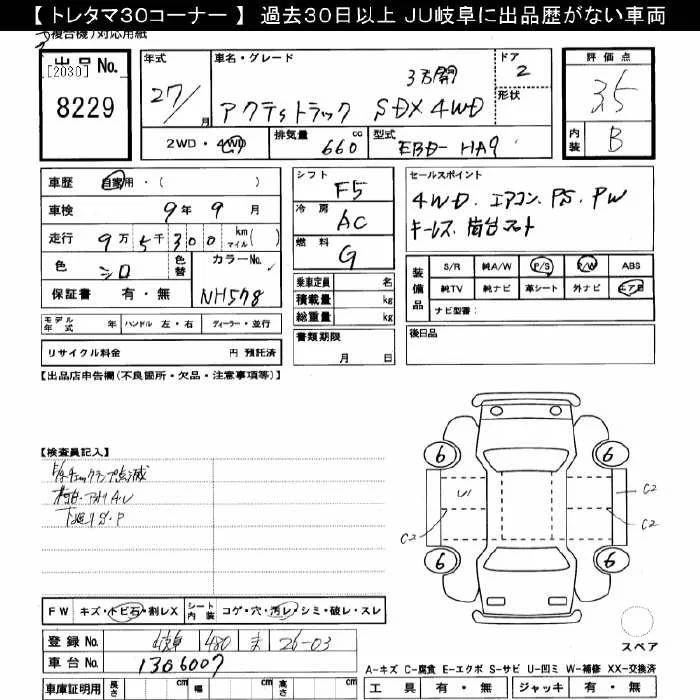 【 トレタマ30コーナー 】 過去30日以上 JU岐阜に出品歴がない車両
複合機）対応用紙
出品No.
[2030]
8229
年式
27/
月
車名・グレード
3方開
アクティトラック SDX 4WD
ドア
2
形状
2WD・4WD
排気量
660
cc
型式
EBD-HA9
評価点
3.5
内装
B
車歴 自家用・( )
車検 9年 9月
走行 9万5千300 km マイル( )
色 シロ
色替
カラーNo.
NH578
保証書 有・無
モデル年式 年 ハンドル 左・右 ディーラー・並行
リサイクル料金 円 預託済
シフト
F5
冷房
AC
燃料
G
乗車定員 名
積載量 kg
総重量 kg
書類期限
月 日
セールスポイント
4WD. エアコン. PS. PW
キーレス. 荷台マット
装備品
S/R 純A/W P/S P/W ABS
純TV 純ナビ 革シート 外ナビ エアB
ナビ型番：
後日品
【出品店申告欄(不良箇所・欠品・注意事項等)】
【検査員記入】
チェックランプ点滅
荷台・アオリ A.U
下廻り S.P
6 6
U1
C2
C2
C2
6 6
スペア
FW キズ・トビ石・割レX
シート内装 コゲ・穴・汚レ・シミ・破レ・スレ
登録No. 岐阜 480 ま 26-03
車台No. 1306007
車庫証明用 長さ cm 幅 cm 高さ cm
A-キズ C-腐食 E-エクボ S-サビ U-凹ミ W-補修 XX-交換済
工具 有・無 ジャッキ 有・無